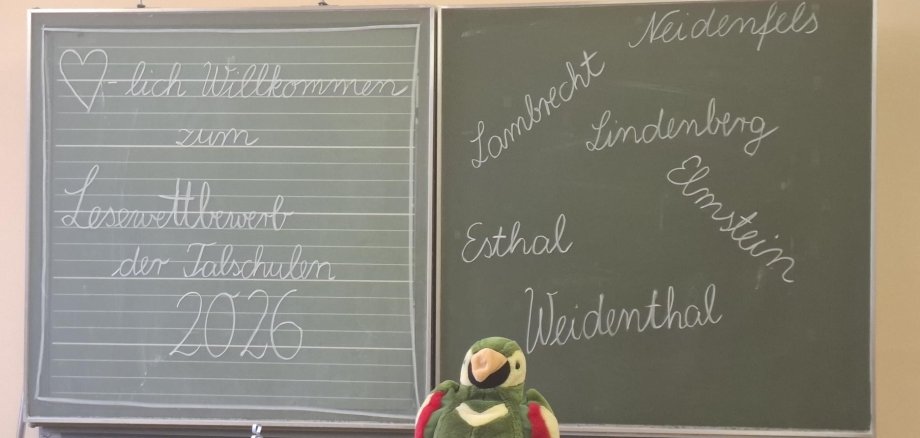 ♡-lich Willkommen
zum
Lesewettbewerb
der Talschulen
2026
Neidenfels
Lambrecht
Lindenberg
Elmstein
Esthal
Weidenthal